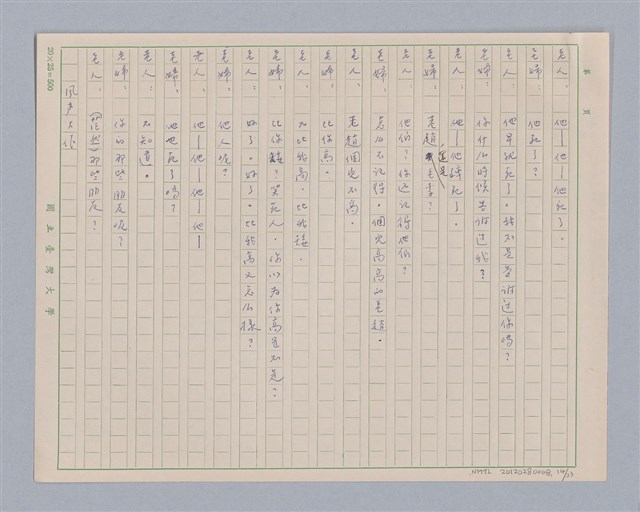 第 頁
老人：他—他—他死了。
老婦：他死了？
老人：他早就死了。我不是告訴過你嗎？
老婦：你什么時候告訴过我？
老人：他—他碎死了。
老婦：老趙還是老李？
老人：他们？你还记得他们？
老婦：怎么不记得。個兒高高的老趙。
老人：老趙個兒不高。
老婦：比你高。
老人：不比我高。比我矮。
老婦：比你矮？笑死人。你以为你高是不是？
老人：好了。好了。比我高又怎么樣？
老婦：他人呢？
老人：他—他—他—他—
老婦：他也死了嗎？
老人：不知道。
老婦：你的那些朋友呢？
老人：（茫然）那些朋友？
風声大作
國立臺灣大學
20×25=500
NMTL 20120280008, 14/23